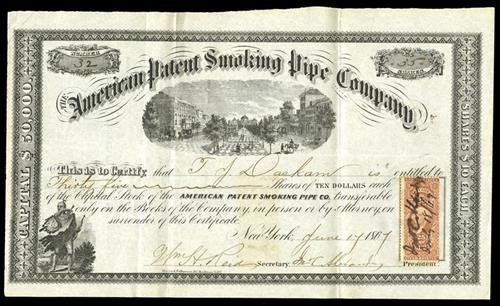 NUMBER
32
35
SHARES
THE American Patent Smoking Pipe Company
CAPITAL $ 50,000.
SHARES $10 EACH.
This is to Certify that T J Daskam is entitled to
Thirty five Shares of TEN DOLLARS each
of the Capital Stock of the AMERICAN PATENT SMOKING PIPE CO. transferable
only on the Books of the Company, in person or by Attorney, on
surrender of this Certificate.
New York, June 17 1867
Wm H. Reid Secretary. President.